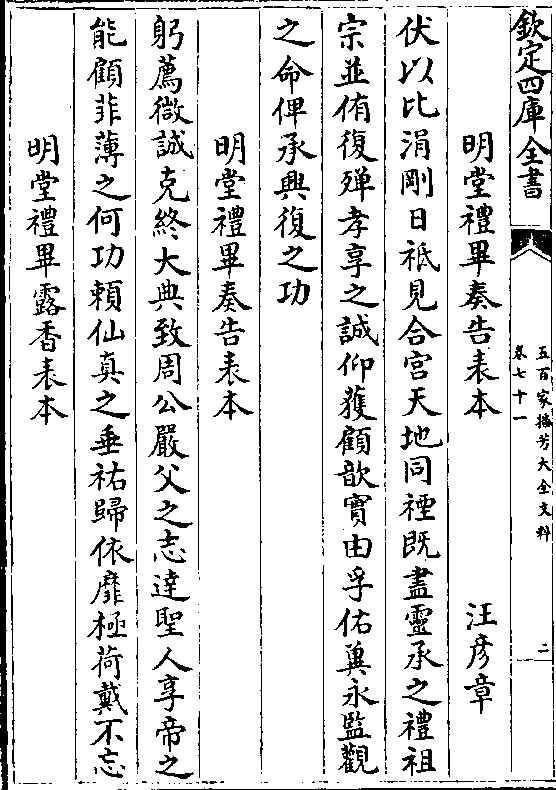 欽定四庫全書
五百家播芳大全文粹
卷七十一
二
明堂禮畢奏告表本 汪彦章
伏以比涓剛日祗見合宮天地同禋既盡靈承之禮祖
宗並侑復殫孝享之誠仰獲顧歆實由孚佑冀永監觀
之命俾承興復之功
明堂禮畢奏告表本
躬薦微誠克終大典致周公嚴父之志達聖人享帝之
能顧菲薄之何功頼仙真之垂祐歸依靡極荷戴不忘
明堂禮畢露香表本